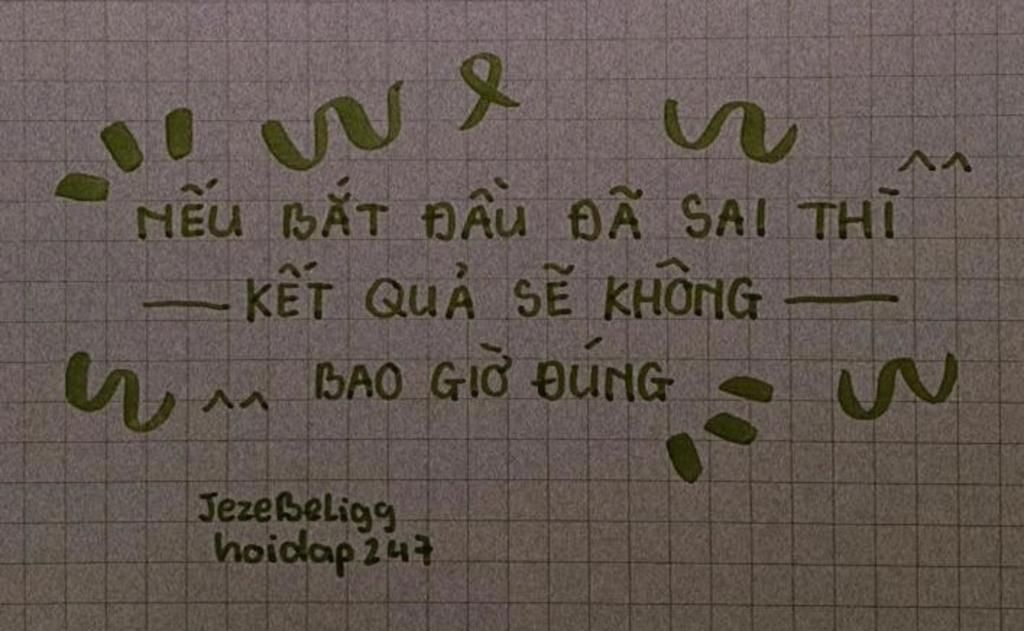 NẾU BẮT ĐẦU ĐÃ SAI THÌ ^^
— KẾT QUẢ SẼ KHÔNG —
^^ BAO GIỜ ĐÚNG
JezeBeLigg
hoidap247